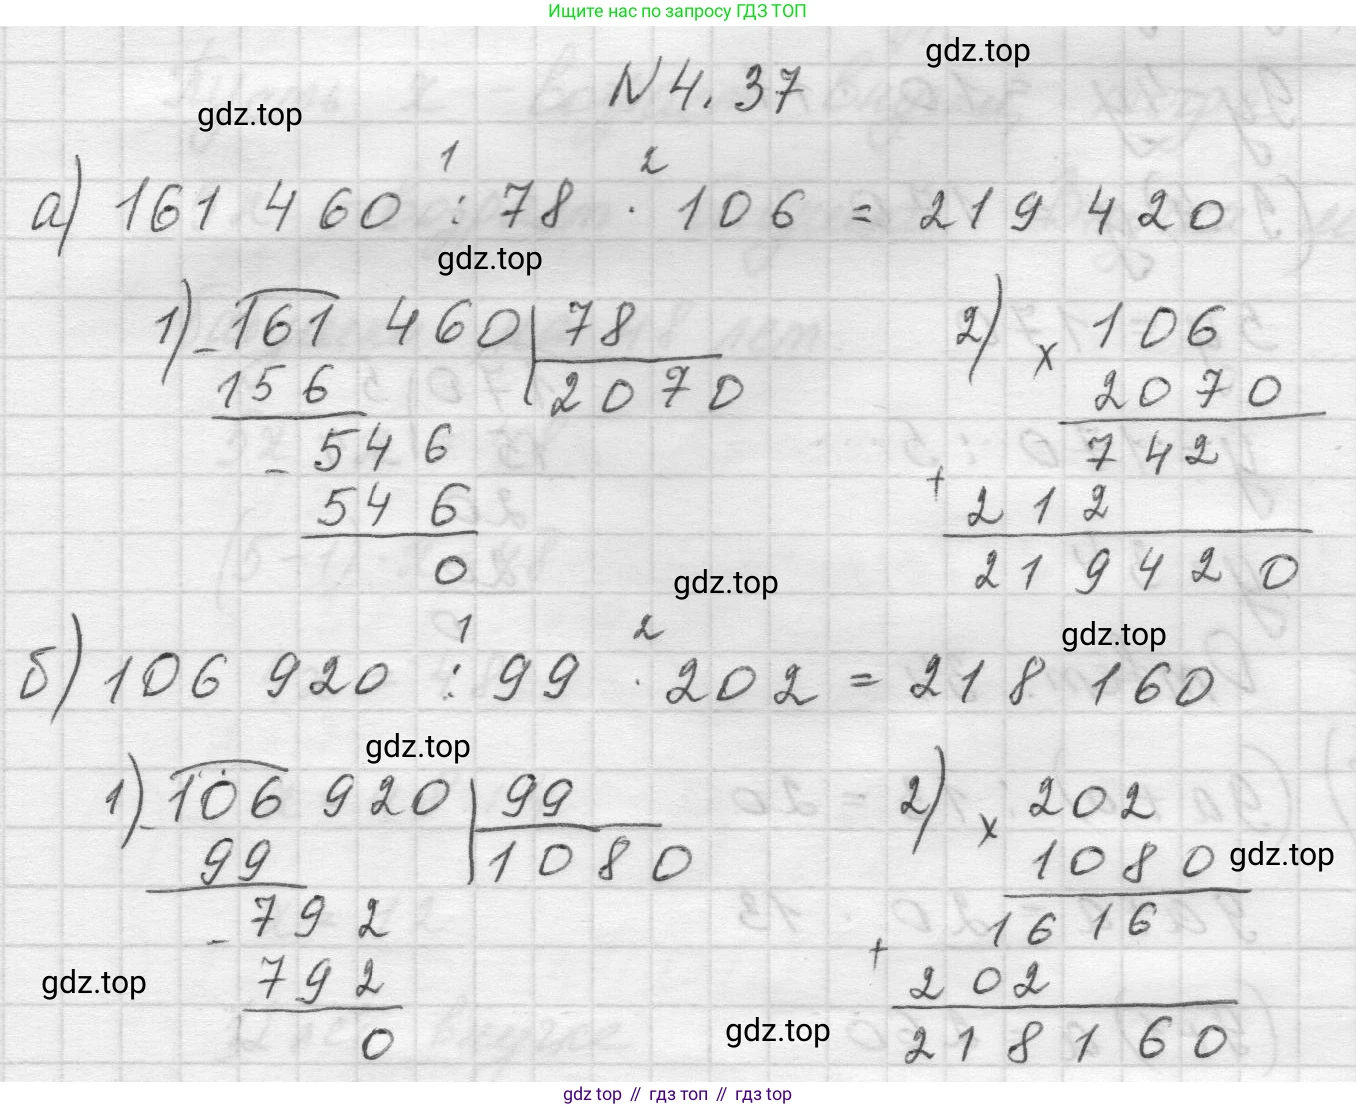 Ищите нас по запросу ГДЗ ТОП
gdz.top
N4.37
gdz.top
1 2
а) 161 460 : 78 · 106 = 219 420
gdz.top
1) - 161 460 | 78 2) × 106
156 2070 2070
- 546 742
546 + 212
0 219420
gdz.top
1 2
gdz.top
б) 106 920 : 99 · 202 = 218 160
gdz.top
1) - 106 920 | 99 2) × 202
99 1080 1080 gdz.top
- 792 1616
792 + 202
gdz.top
0 218160
gdz.top
gdz top // гдз топ // gdz top